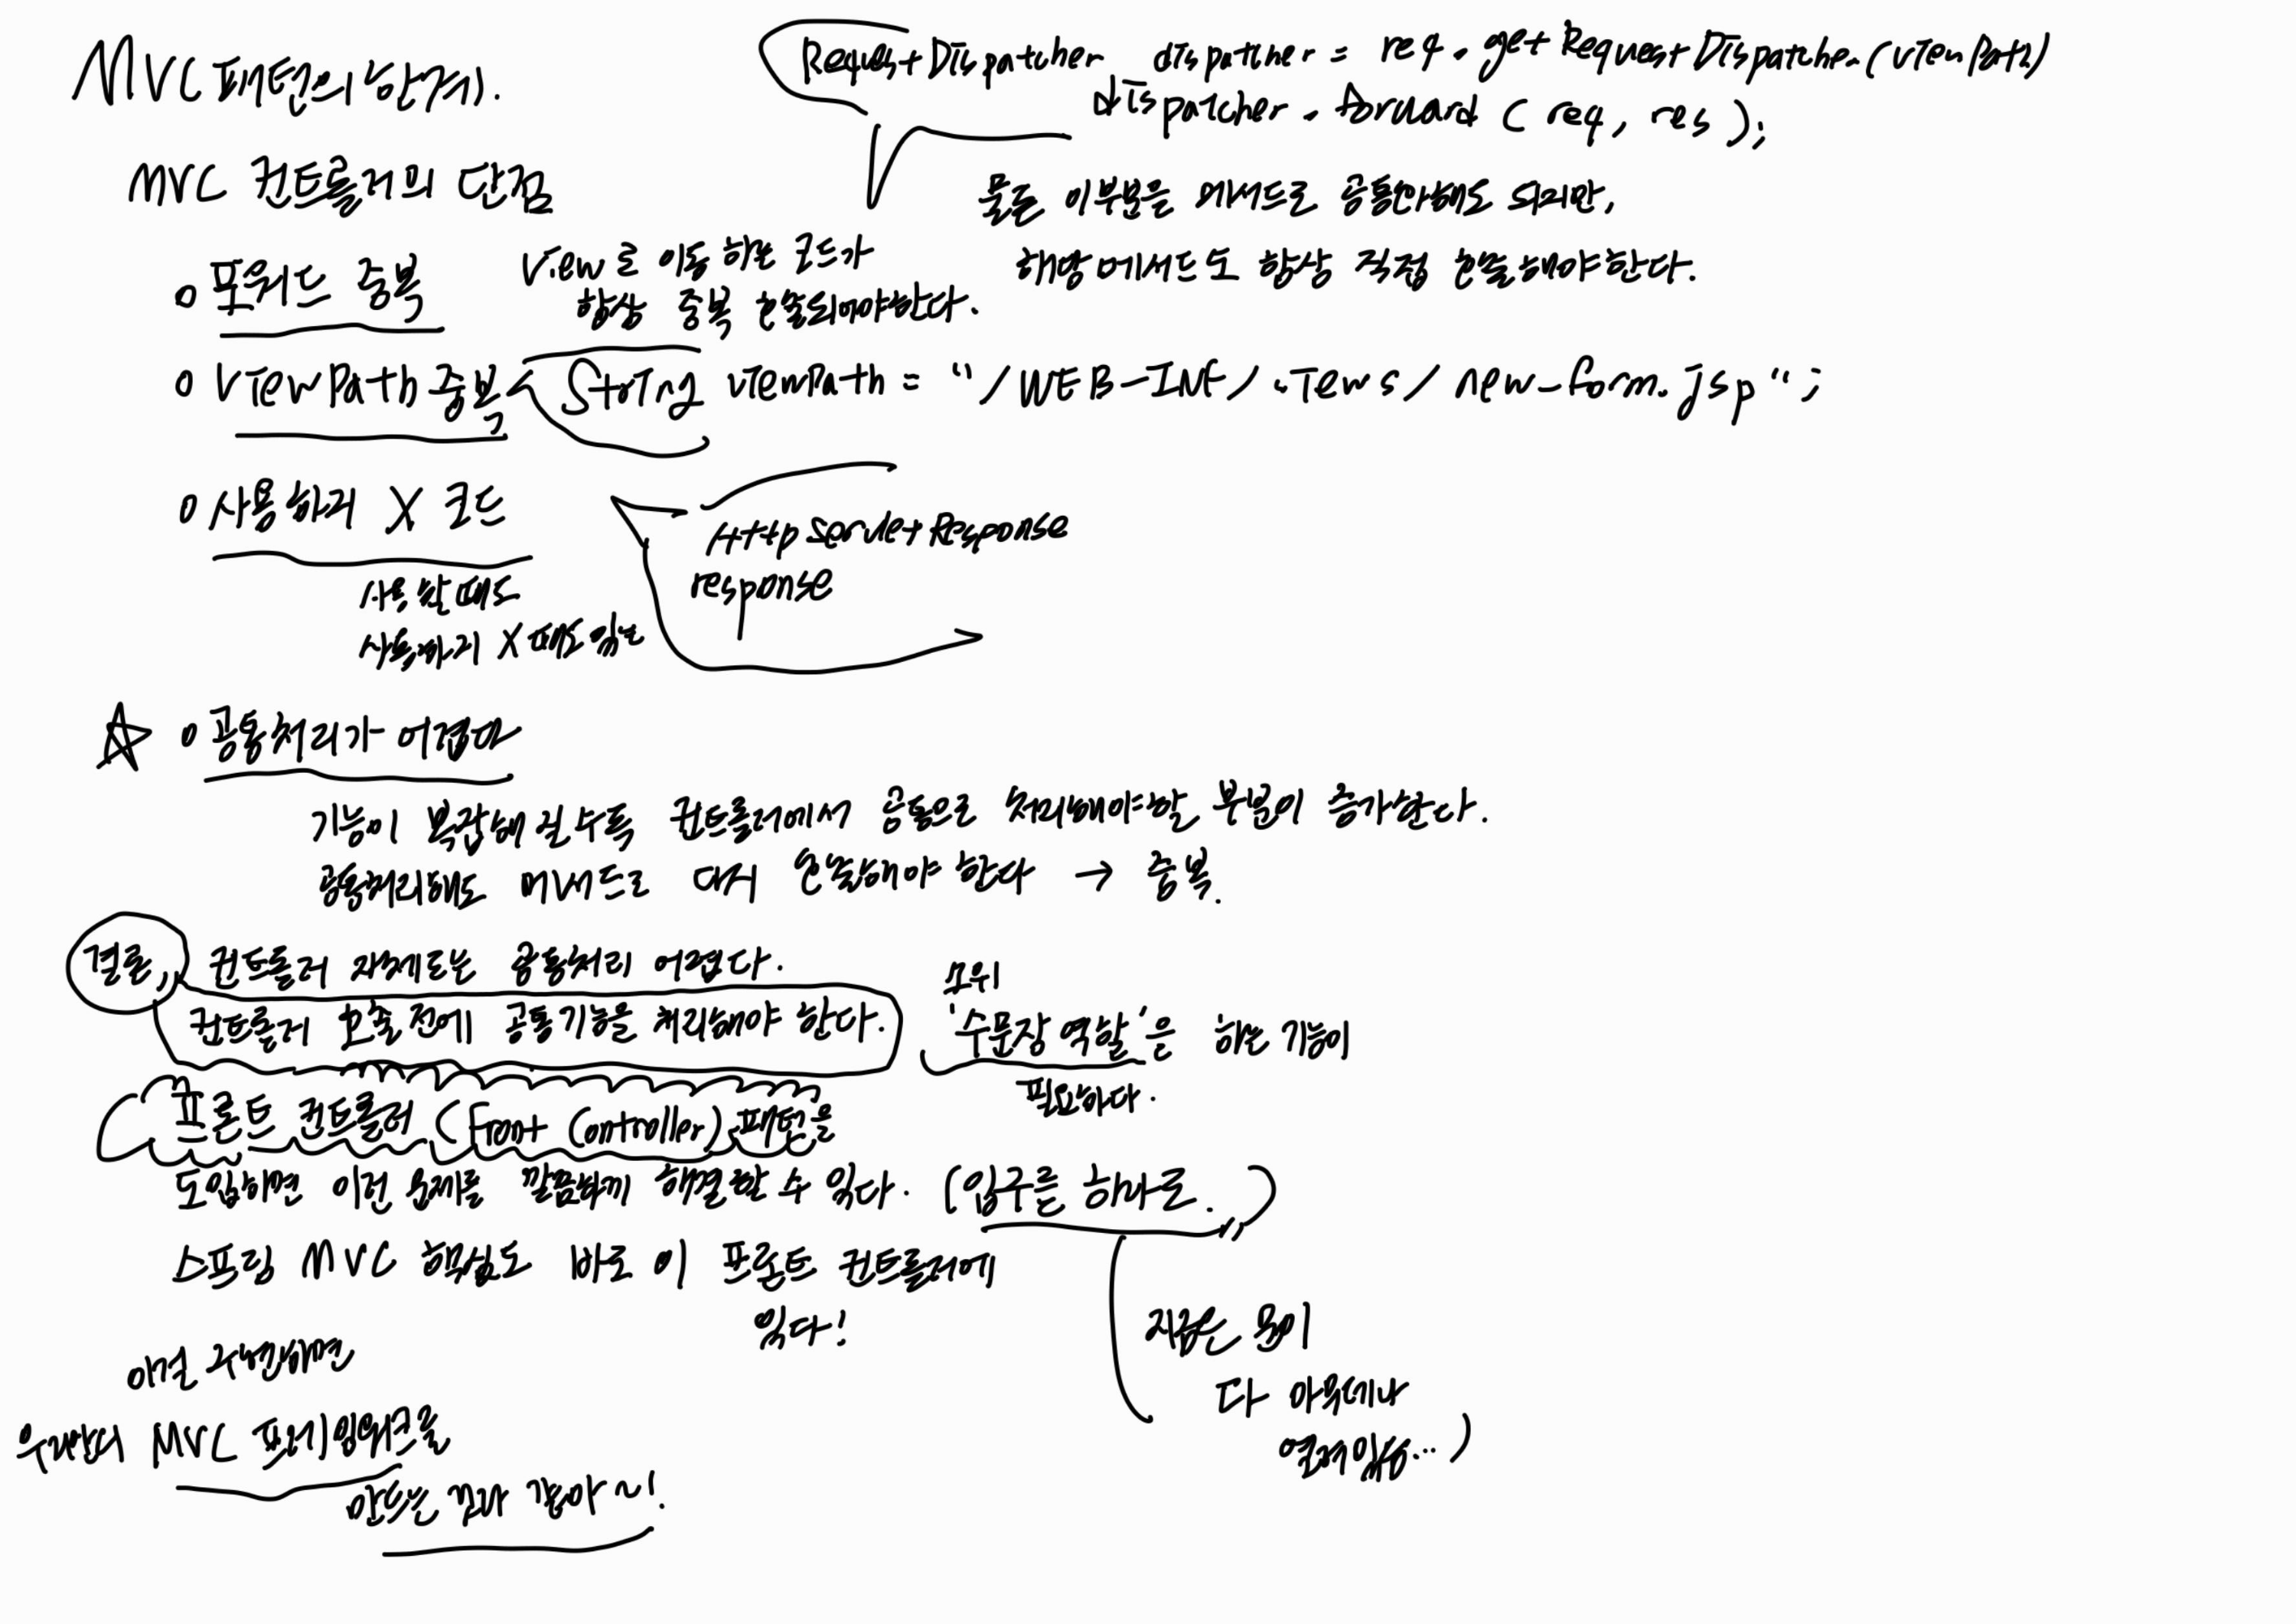 MVC 패턴의 한계.
RequestDispatcher dispatcher = req.getRequestDispatcher(viewPath)
dispatcher.forward(req, res);
MVC 컨트롤러의 단점
물론 이부분은 메서드로 공통화해도 되지만,
해당메서드도 항상 직접 호출해야한다.
o 포워드 중복
View로 이동하는 코드가
항상 중복 호출되어야한다.
o ViewPath 중복
String viewPath = "/WEB-INF/views/new-form.jsp";
o 사용하지 X 코드
HttpServletResponse
response
사용할때도
사용하지 X 때도 있는
☆ o 공통처리가 어렵다
기능이 복잡해질수록 컨트롤러에서 공통으로 처리해야할 부분이 증가한다.
공통처리해도 메서드로 다시 호출해야 한다 → 중복.
결론, 컨트롤러 자체로는 공통처리 어렵다.
컨트롤러 호출 전에 공통기능을 처리해야 한다.
소위
'수문장 역할'은 하는 기능이
필요하다.
프론트 컨트롤러 (Front Controller) 패턴을
도입하면 이런 문제를 깔끔하게 해결할 수 있다. (입구를 하나로.)
스프링 MVC 핵심도 바로 이 프론트 컨트롤러에
있다!
지금은 문이
다 아무데나
열려있음...)
이걸 구현하면
우리만의 MVC 프레임워크를
만드는 꼴과 같아~!.